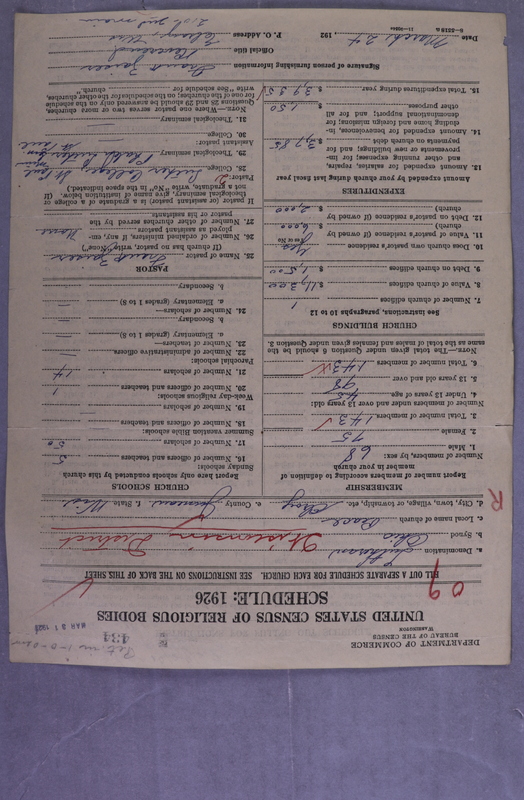 DEPARTMENT OF COMMERCE
BUREAU OF THE CENSUS
WASHINGTON
434
MAR 31 1928
UNITED STATES CENSUS OF RELIGIOUS BODIES
SCHEDULE: 1926
FILL OUT A SEPARATE SCHEDULE FOR EACH CHURCH. SEE INSTRUCTIONS ON THE BACK OF THIS SHEET
09
a. Denomination Lutheran
b. Synod Ohio Wisconsin District
c. Local name of church Grace
d. City, town, village, or township, etc. e. County Juneau f. State Wis
R
MEMBERSHIP
Report number of members according to definition of member in your church
Number of members, by sex:
1. Male 68
2. Female 75
3. Total number of members 143
Number of members under and over 13 years old:
4. Under 13 years of age
5. 13 years old and over 98
6. Total number of members 143
NOTE.—The total given under Question 6 should be the same as the total of males and females given under Question 3.
CHURCH BUILDINGS
See instructions, paragraphs 10 to 12
7. Number of church edifices 1
8. Value of church edifices $
9. Debt on church edifices $ 1,500
10. Does church own pastor's residence Yes
(Yes or No)
11. Value of pastor's residence (if owned by church) $ 6,000
12. Debt on pastor's residence (if owned by church) $ 2,000
EXPENDITURES
Amount expended by your church during last fiscal year
13. Amount expended for salaries, repairs, and other running expenses; for improvements or new buildings; and for payments on church debt $ 3,785
14. Amount expended for benevolences, including home and foreign missions; for denominational support; and for all other purposes $ 150
15. Total expenditures during year $ 3935
CHURCH SCHOOLS
Report here only schools conducted by this church
Sunday schools:
16. Number of officers and teachers 5
17. Number of scholars 50
Summer vacation Bible schools:
18. Number of officers and teachers
19. Number of scholars
Week-day religious schools:
20. Number of officers and teachers 1
21. Number of scholars 14
Parochial schools:
22. Number of administrative officers —
23. Number of teachers—
a. Elementary (grades 1 to 8) —
b. Secondary
24. Number of scholars—
a. Elementary (grades 1 to 8) —
b. Secondary
PASTOR
25. Name of pastor Frank
(If church has no pastor, write "None")
26. Number of ordained ministers, if any, employed as assistant pastors None
27. Number of other churches served by the pastor or his assistants
If pastor (or assistant pastor) is a graduate of a college or theological seminary, give name of institution below. (If not a graduate, write "No" in the space indicated.)
Pastor:
28. College Luther College St Paul
29. Theological seminary
St Paul
Assistant pastor:
30. College
31. Theological seminary
NOTE.—Where one pastor serves two or more churches, Questions 25 and 29 should be answered only on the schedule for one of the churches; on the schedules for the other churches, write "See schedule for church."
Signature of person furnishing information Frank
Official title Reverend
P. O. Address Elroy, Wis
Date March 24, 192
8—5518 a
11—9084